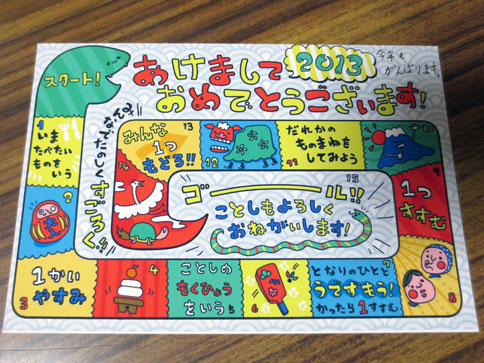 スタート!
あけまして
おめでとうございます!
2013
今年も
がんばります。
みんなで
たのしくすごろく!!
1
いま
たべたい
ものを
いう
2
3
1かい
やすみ
4
ことしの
もくひょう
をいう
5
6
7
となりのひとと
うですもう!
かったら1すすむ
8
1つ
すすむ
10
だれかの
ものまねを
してみよう
11
12
13
みんな
1つ
もどる!!
15
ゴール!!
ことしもよろしく
おねがいします!